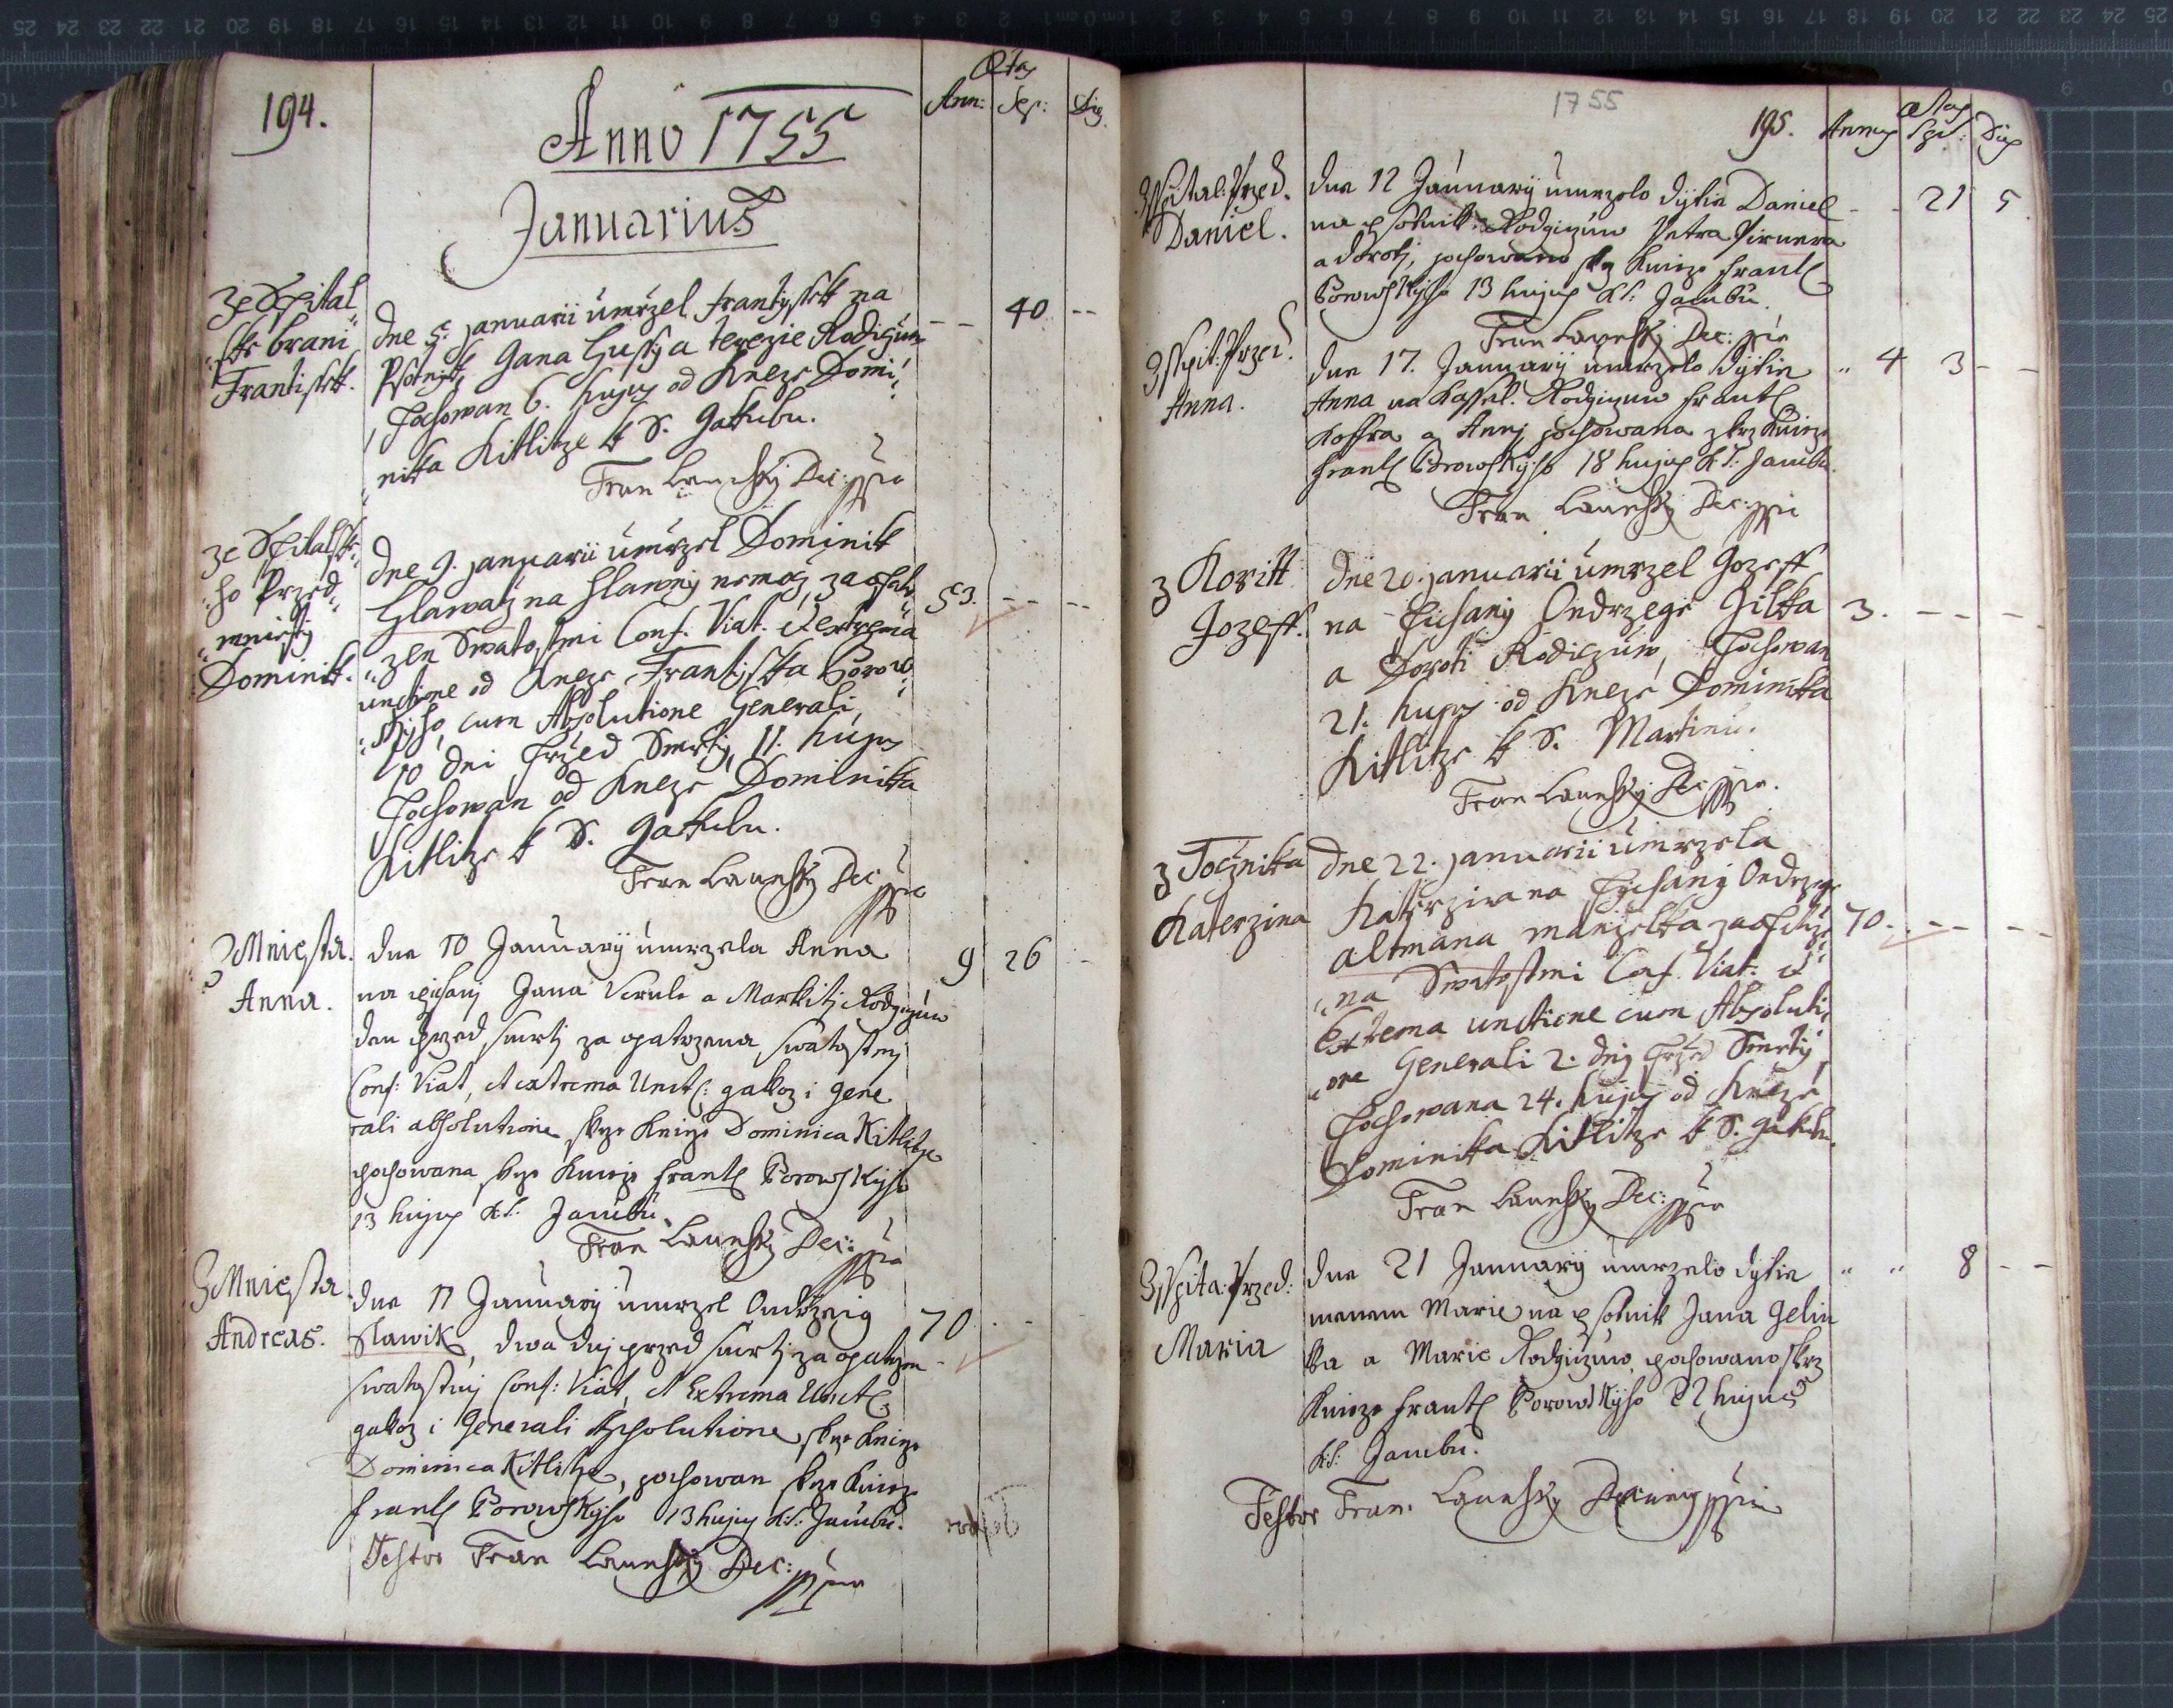 194.
Anno 1755
Januarius
Ætas
Ann: Sep: Die
Ze Spital
ske brani
Frantissek.
dne 5. januarii umrzel Frantyssek na
Psotnjk, Gana Hussy a Terezie Rodiczuw
Pochowan 6. hujus od Kneze Domi
nika Kitlitze k S. Gakubu.
40
Fran Lauressky Dec: mpria
ze Spitalske
ho Przed
miesty
Dominik.
dne 9. januarii umrzel Dominik
Hlawatz na hlawny nemoc, zaopatr
zen Swatostmi Conf. Viat. et extrema
unctione od Kneze Frantisska Borow
skyho, cum Absolutione Generali,
10 dni przed Smrty, 11. hujus
Pochowan od Kneze Dominika
Kitlitze k S. Gakubu.
53.
Fran Lauressky Dec mpria
Z Miesta
Anna.
dne 10 Januarij umrzela Anna
na psany Jana Verule a Markity Rodyczuw
den przed smrtj za opatrzena swatostmj
Conf: Viat, et extrema Unct: gakoz i gene
rali absolutione skrze knieze Dominica Kitlitze
pochowana skrze knieze Frant Borowskyho
13 hujus k S: Jacubu
9 26
Fran Lauressky Dec: mpria
Z Miesta
Andreas.
dne 11 Januarij umrzel Ondrzeig
Slawik, dwa dnj przed smrtj za opatrzen
swatostmj Conf: Viat, et Extrema Unct
gakoz i Generali Absolutione skrze knieze
Dominica Kitlitze, pochowan skrze knieze
Frant Borowskyho 13 hujus k S: Jacubu.
70
Testor Fran Lauressky Dec: mpria
1755
195.
Ætas
Annus Sep: Dies
Z Spital: Przed.
Daniel.
dne 12 Januarij umrzelo dytie Daniel
na psotnik: Rodyczuw Petra Pirnera
a Doroty, pochowano skrz knieze Frant
Borowskyho 13 hujus k S: Jacubu.
21 5
Fran Lauressky Dec: mpria
Z Spit: Przed.
Anna.
dne 17. Januarij umrzelo dytie
Anna na kassel. Rodyczuw Frant
Koffra a Anny pochowana skrz knieze
Frant Borowskyho 18 hujus k S: Jacubu.
4 3
Fran Lauressky Dec: mpria
z Koritt
Jozeff.
dne 20. januarii umrzel Gozeff
na Psany Ondrzege Gilka
a Doroti Rodiczuw, Pochowan
21. hujus od Kneze Dominika
Kitlitze k S. Martinu.
3.
Fran Lauressky Dec mpria.
z Tocznika
Katerzina
dne 22. januarii umrzela
Katerzina na Psany Ondrzege
Altmana manzelka zaopatrze
na Swatostmi Conf. Viat. et
Extrema unctione cum Absoluti
one Generali 2. dny przed Smrty
Pochowana 24. hujus od Kneze
Dominika Kitlitze k S. Gakubu.
70.
Fran Lauressky Dec: mpria
Z Spita: Przed:
Maria
dne 21 Januarij umrzelo dytie
menem Marie na psotnik Jana Gelin
ka a Marie Rodyczuw, pochowano skrz
knieze Frant Borowskyho 22 hujus
k S: Jacubu.
8
Testor Fran. Lauressky Decanus mpria